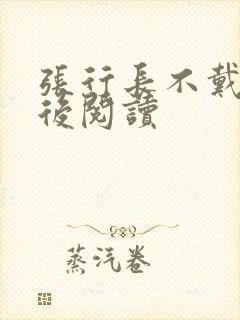 張行長不戴
後閱讀
蒸汽卷